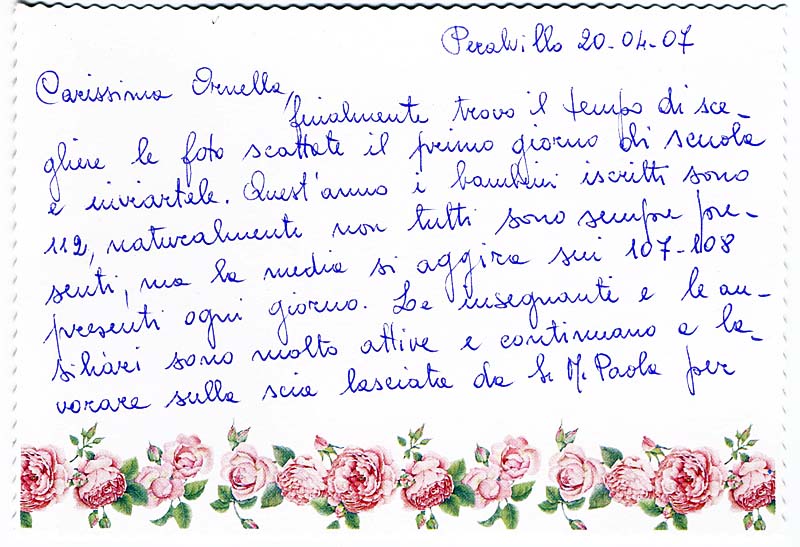 Peralvillo 20-04-07
Carissima Ornella,
finalmente trovo il tempo di sce-
gliere le foto scattate il primo giorno di scuola
e inviartele. Quest'anno i bambini iscritti sono
112, naturalmente non tutti sono sempre pre-
senti, ma la media si aggira sui 107-108
presenti ogni giorno. Le insegnanti e le au-
siliari sono molto attive e continuano a la-
vorare sulla scia lasciata da Sr. M. Paola per